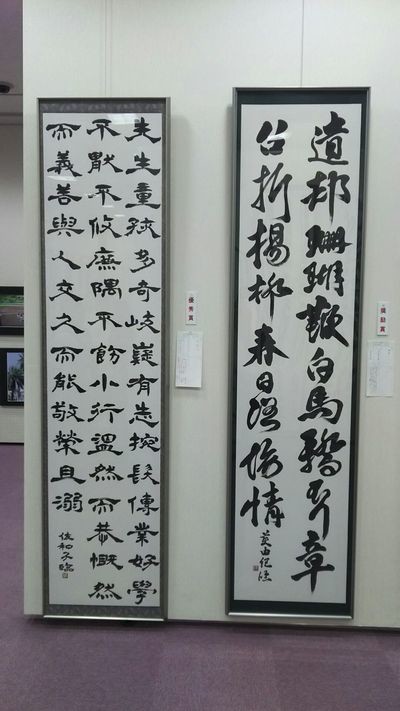 遺却珊瑚鞭白馬驕不行章
台折楊柳春日路傍情
奨励賞
先生童孩多奇岐嶷有志捥髮傳業好學
不厭不攸廉隅不飭小行溫然而恭慨然
而義善與人交久而能敬榮且溺
佐和子臨
優秀賞